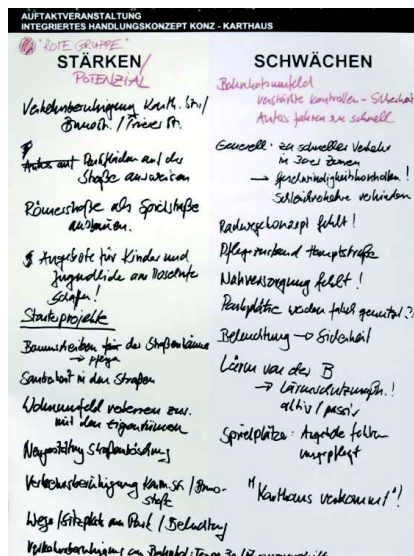 AUFTAKTVERANSTALTUNG
INTEGRIERTES HANDLUNGSKONZEPT KONZ - KARTHAUS
"ROTE GRUPPE"
STÄRKEN/
POTENZIAL
Verkehrsberuhigung Karth. Str./
Brunostr. / Trierer Str.
Parkflächen auf der
Straße ausweisen
Römerstraße als Spielstraße
ausbauen.
Angebote für Kinder und
Jugendliche am Moselufer
schaffen!
Starterprojekte
Baumscheiben der Straßenbäume
→ pflegen
Sauberkeit in den Straßen
Wohnumfeld verbessern zus.
mit den Eigentümern
Neugestaltung Straßenböschung
Verkehrsberuhigung Karth. Str. / Bruno-
straße
Wege / Sitzplätze am Park / Beleuchtung
Verkehrsberuhigung am Bahnhof: Tempo 30
SCHWÄCHEN
Bahnhofsumfeld
verstärkte Kontrollen - Sicherheit
Autos fahren zu schnell
Generell: zu schneller Verkehr
in 30er Zonen
→ Geschwindigkeitskontrollen!
Schleichverkehre verhindern
Radwegekonzept fehlt!
Pflegezustand Hauptstraße
Nahversorgung fehlt!
Parkplätze werden falsch genutzt?!
Beleuchtung → Sicherheit
Lärm von der B
→ Lärmschutzmaßn.!
aktiv / passiv
Spielplätze: Angebote fehlen
ungepflegt
"Karthaus verkommt"!